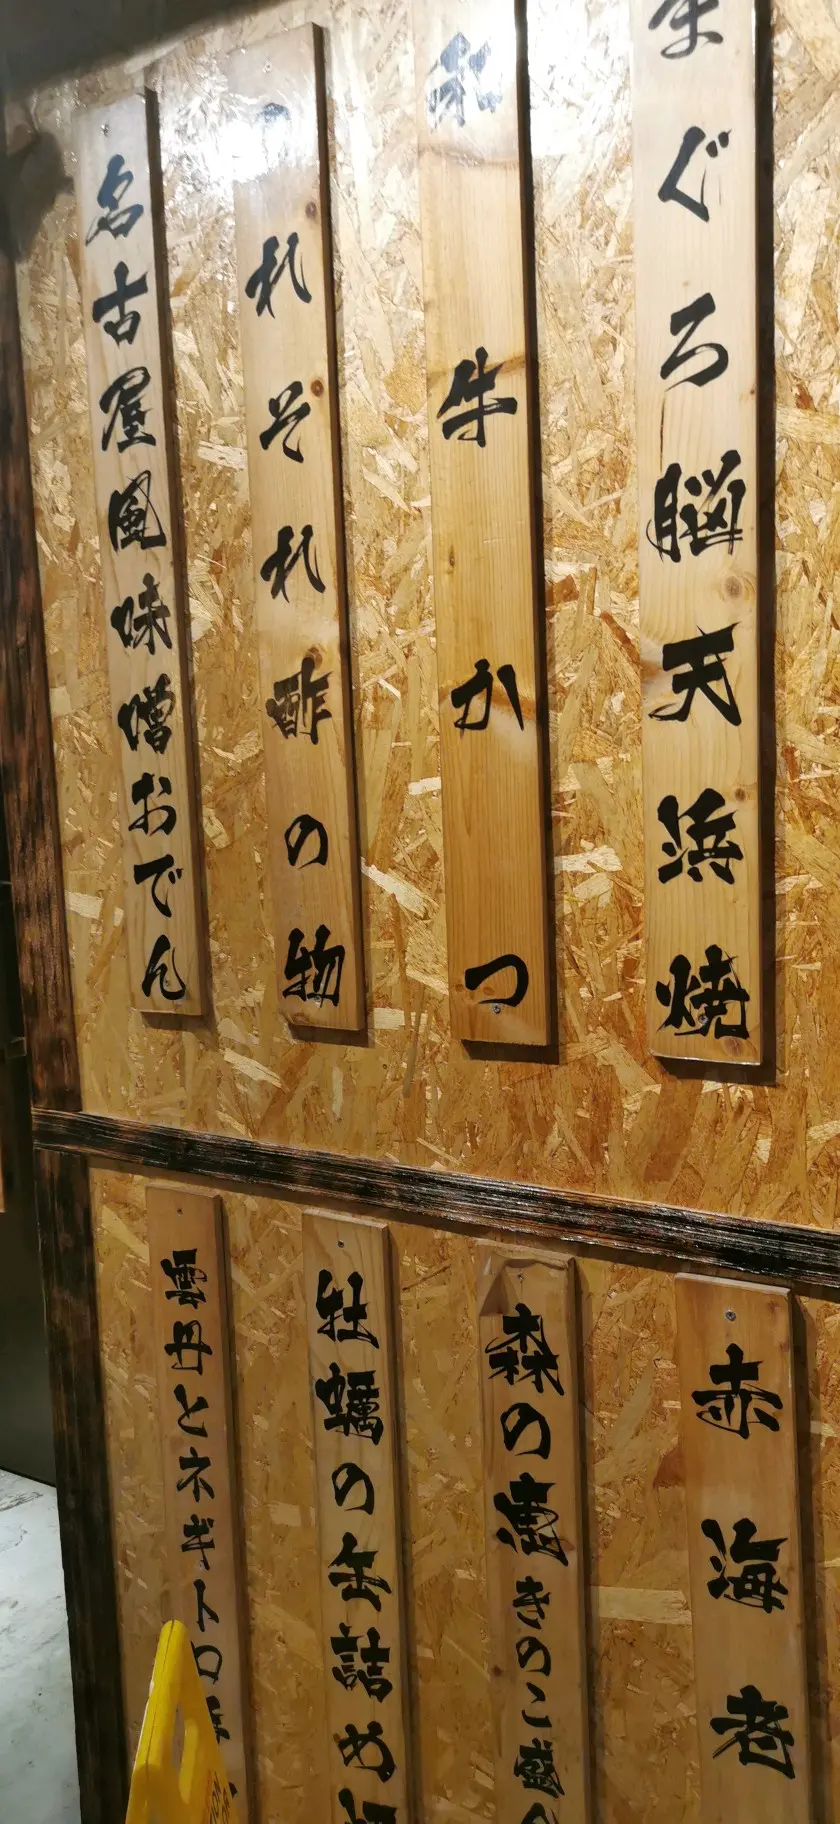 まぐろ脳天浜焼
和牛かつ
のれそれ酢の物
名古屋風味噌おでん
赤海老
森の恵きのこ盛
牡蠣の缶詰め
雲丹とネギトロ